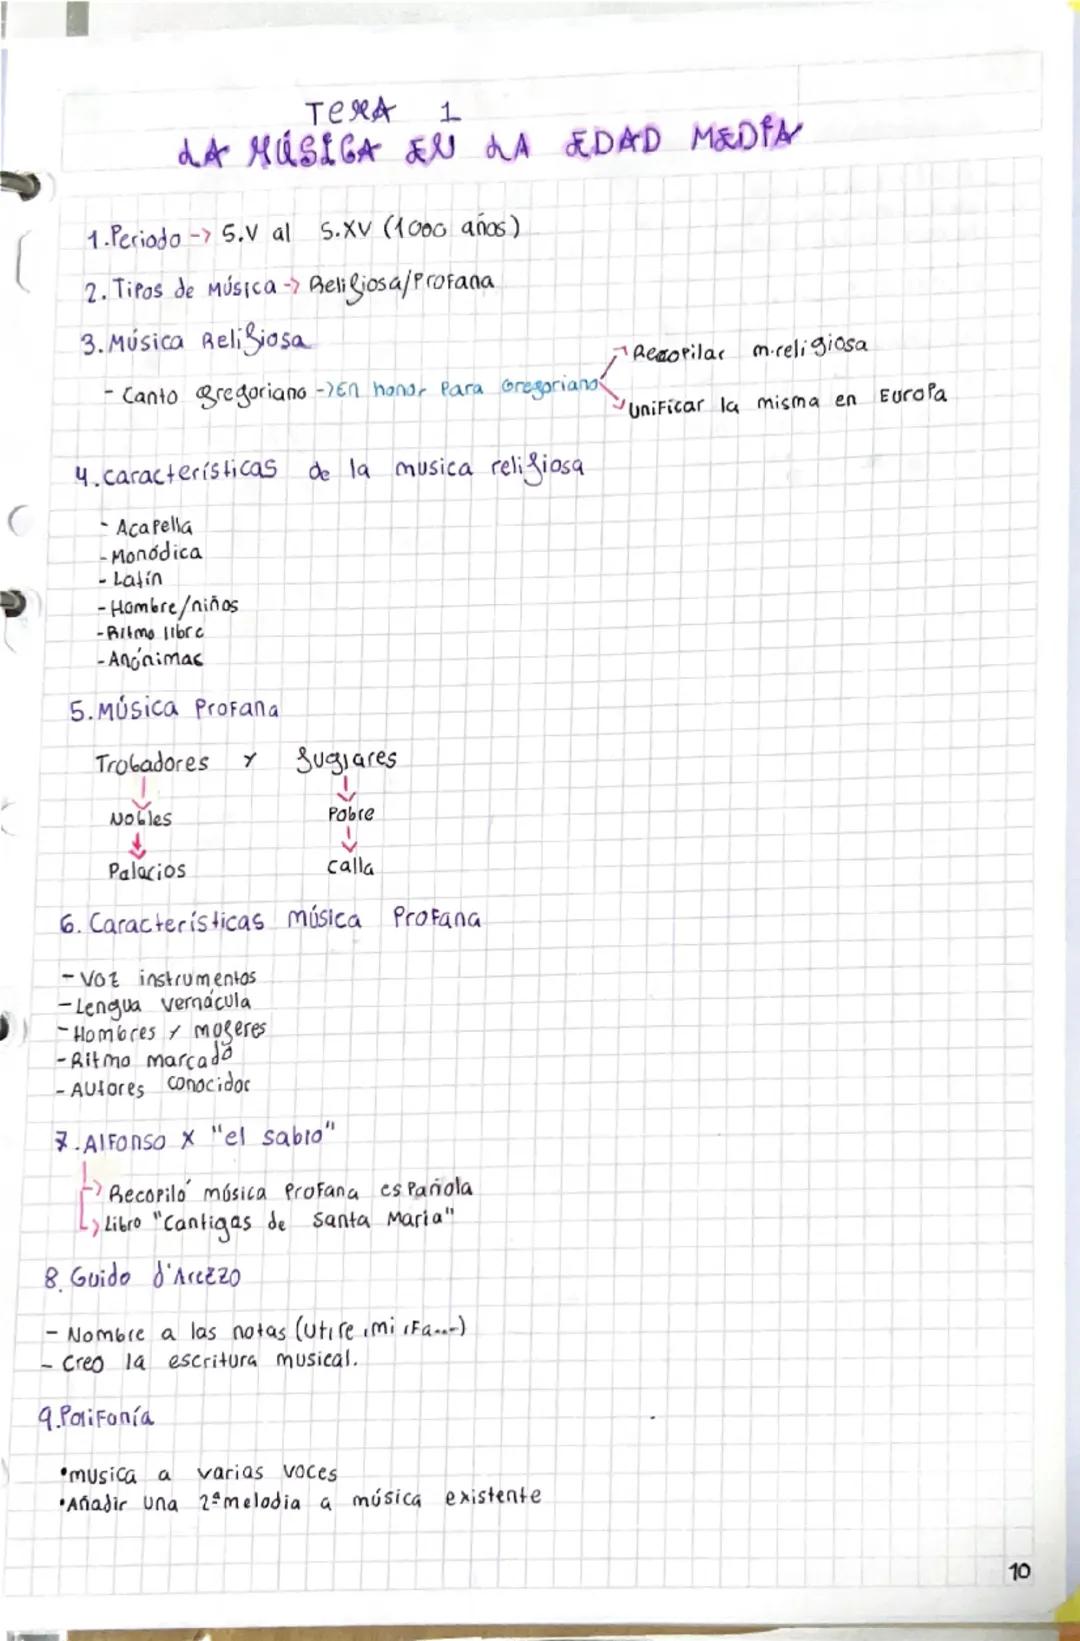 TEMA 1
LA MÚSICA EN LA EDAD MEDIA
1.Periodo -> S.V al S.XV (1000 años)
2. Tipos de Música -> Religiosa/Profana
3. Música Religiosa
- Canto gregoriano -> En honor Para Gregoriano
Recopilar m.religiosa
Unificar la misma en Europa
4.características de la musica religiosa
- Acapella
- Monódica
- Latín
- Hombre/niños
- Ritmo libre
- Anónimas
5. Música Profana
Trobadores y Juglares
Nobles Pobre
Palacios Calla
6. Características música Profana
- Voz instrumentos
- Lengua vernácula
- Hombres y mogeres
- Ritmo marcado
- Autores conocidos
7. Alfonso X "el sabio"
Recopiló música Profana española
Libro "Cantigas de Santa Maria"
8. Guido d'Arezzo
- Nombre a las notas (Ut,re,mi,Fa...)
- Creo la escritura musical.
9. Polifonía
•musica a varias voces
•Añadir una 2ª melodia a música existente
10